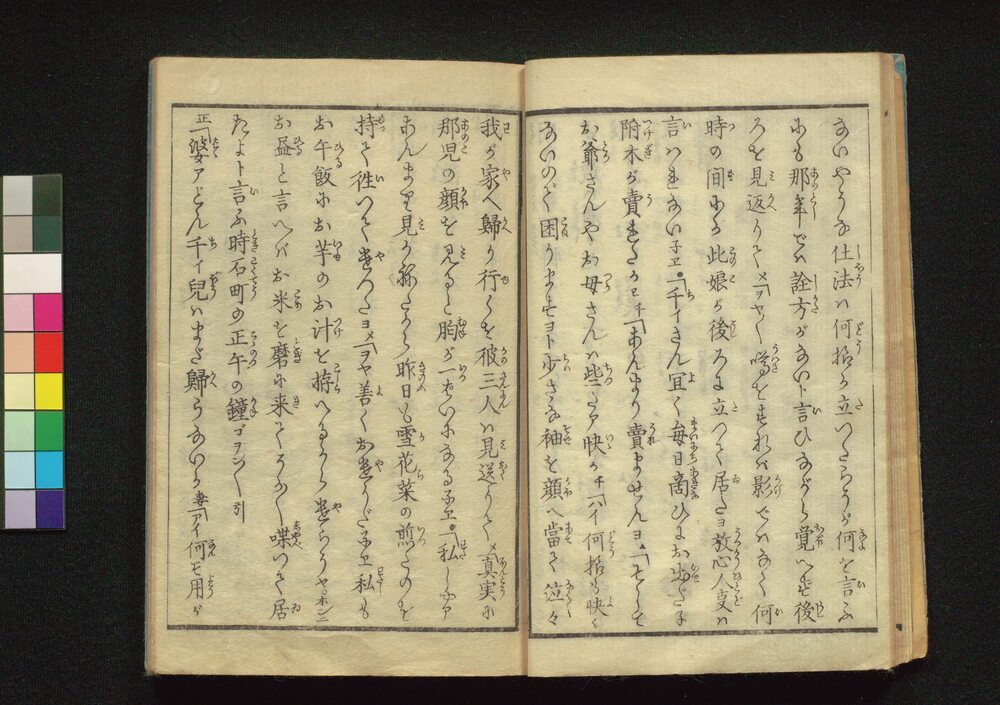 ないやうな仕法は何指か立いたらうが何を言ふ
にも那年では詮方がないト言ひながら覚へず後
ろを見返りてメ「ヲヤ〳〵噂をすれば影ではなく何
時の間にか此娘が後ろに立つて居たヨ放心人叓は
言はれない子ヱ●「千イさん宜く毎日商ひにお出だ子
附木が賣れたかヱチ「あんまり賣ませんヨ▲「そして
お爺さんやお母さんは些たア快かチ「ハイ何指も快く
ないので困りますヨト少さな袖を顔へ當て泣々
我が家へ歸り行くを彼三人は見送りてメ「真実に
那児の顔を見ると胸が一ぱいになる子ヱ●「私しやア
あんまり見か称たから昨日も雪花菜の煎たのを
持て徃つて遣つたヨメ「ヲヤ善くお遣りだ子ヱ私も
お午飯にお芋のお汁を拵へるから遣らうやホンニ
お昼と言へバお米を磨に来てらく喋つて居
たよト言ふ時石町の正午の鐘ゴヲン〳〵引
正「婆アどん千イ兒はまだ歸らないか妻「アイ何ぞ用が